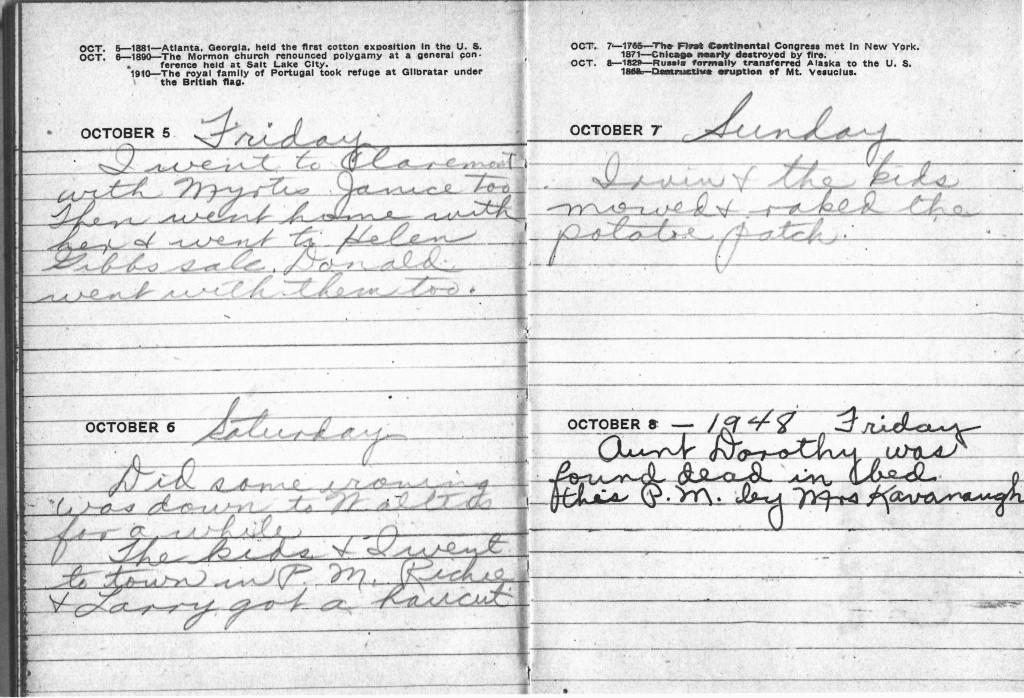 OCT. 5—1881—Atlanta, Georgia, held the first cotton exposition in the U. S.
OCT. 6—1890—The Mormon church renounced polygamy at a general con-
ference held at Salt Lake City.
1910—The royal family of Portugal took refuge at Gilbratar under
the British flag.
OCTOBER 5 Friday
I went to Claremont
with Myrtis Janice too
Then went home with
her & went to Helen
Gibbs sale. Donald
went with them too.
OCTOBER 6 Saturday
Did some ironing
was down to
for a while
The kids & I went
to town in P. M. Richie
& Larry got a haircut
OCT. 7—1765—The First Continental Congress met in New York.
1871—Chicago nearly destroyed by fire.
OCT. 8—1829—Russia formally transferred Alaska to the U. S.
1868—Destructive eruption of Mt. Vesucius.
OCTOBER 7 Sunday
Irvin & the kids
mowed & raked the
potatoe patch.
OCTOBER 8 — 1948 Friday
Aunt Dorothy was
found dead in bed
this P. M. by Mrs Kavanaugh